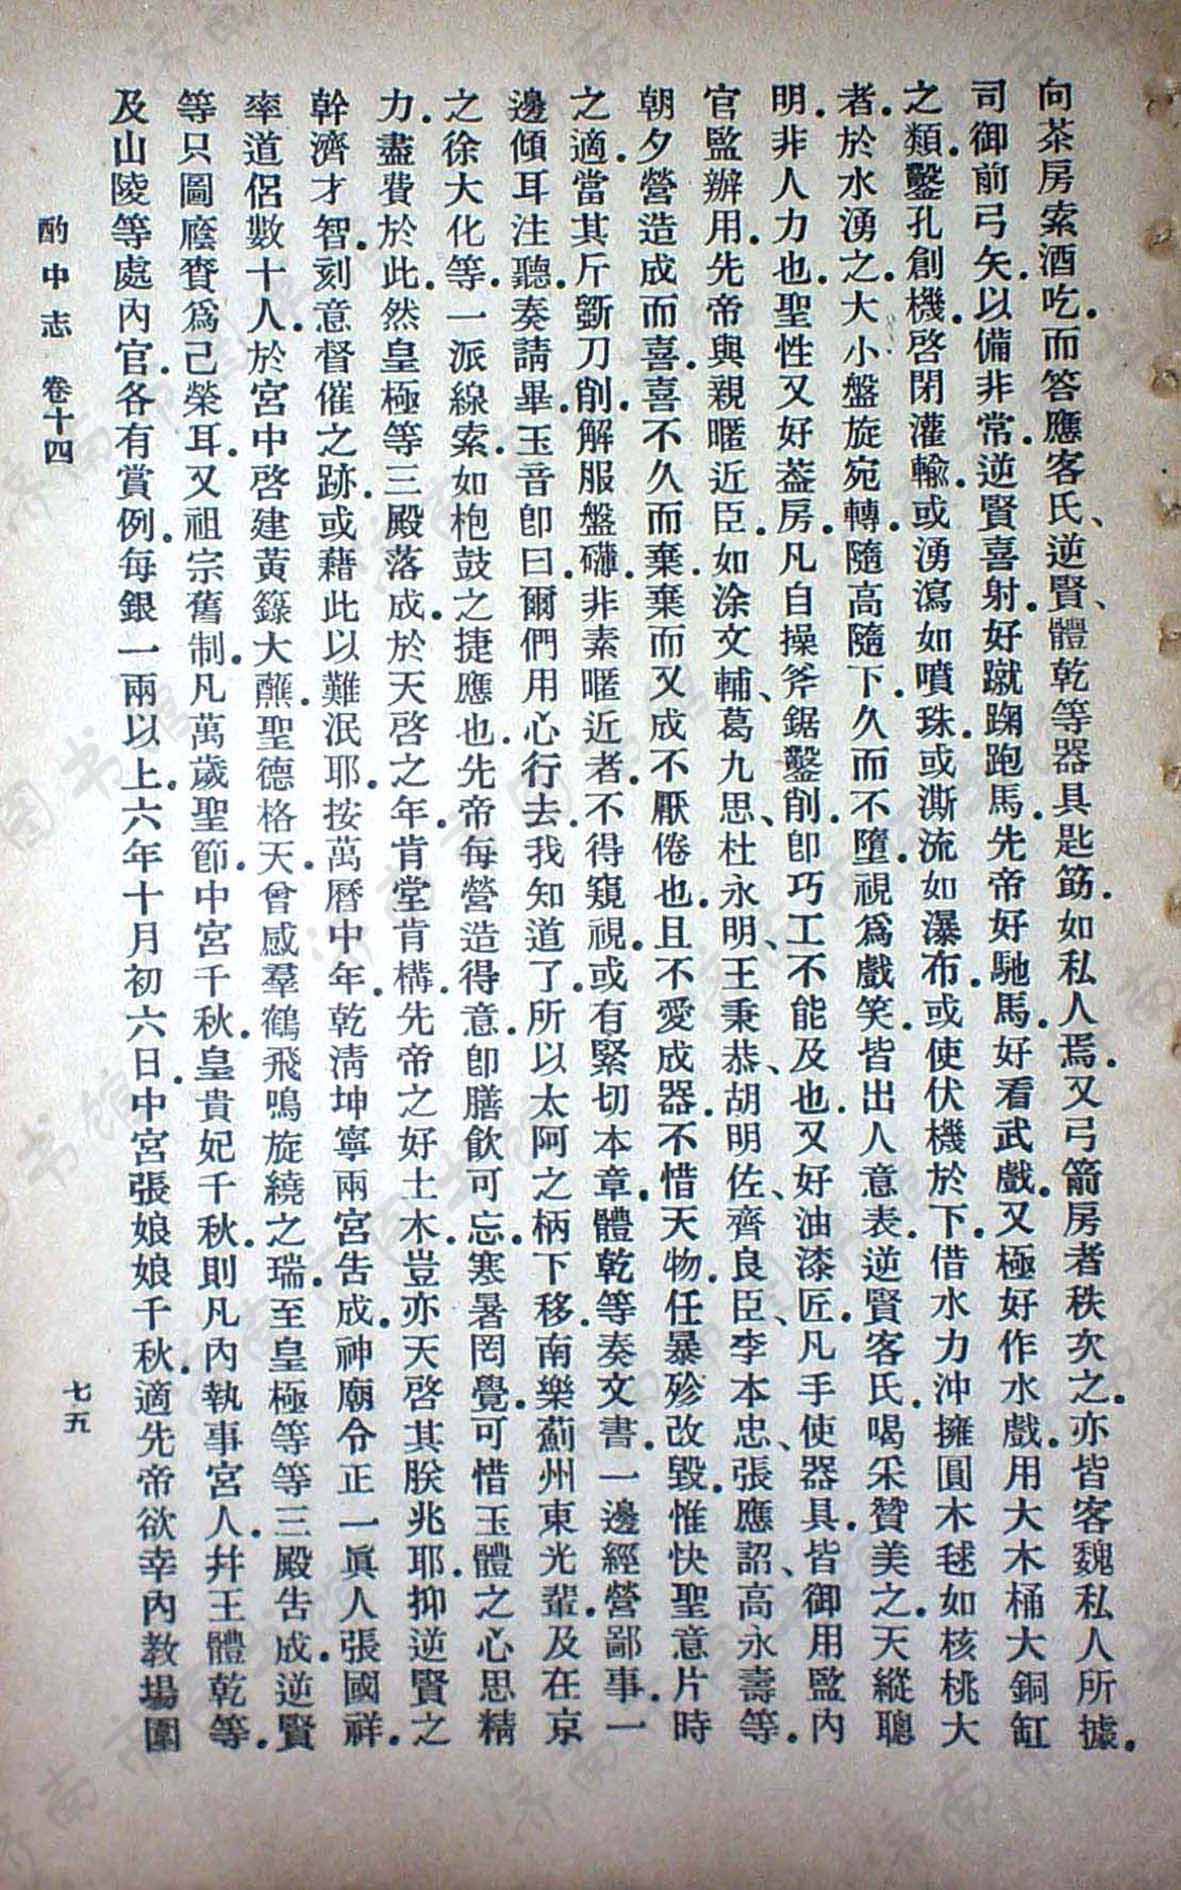 向茶房索酒吃.而答應客氏、逆賢、體乾等器具匙筯.如私人焉.又弓箭房者秩次之.亦皆客魏私人所據.
司御前弓矢.以備非常.逆賢喜射.好蹴踘跑馬.先帝好馳馬.好看武戲.又極好作水戲.用大木桶大銅缸
之類.鑿孔創機.啓閉灌輸.或湧瀉如噴珠.或澌流如瀑布.或使伏機於下.借水力沖擁圓木毬如核桃大
者.於水湧之.大小盤旋宛轉.隨高隨下.久而不墮.視爲戲笑.皆出人意表.逆賢客氏.喝采贊美之.天縱聰
明.非人力也.聖性又好葢房.凡自操斧鋸鑿削.卽巧工不能及也.又好油漆匠.凡手使器具.皆御用監內
官監辦用.先帝與親暱近臣.如涂文輔、葛九思、杜永明、王秉恭、胡明佐、齊良臣、李本忠、張應詔、高永壽等.
朝夕營造.成而喜.喜不久而棄.棄而又成.不厭倦也.且不愛成器.不惜天物.任暴殄改毀.惟快聖意片時
之適.當其斤斲刀削.解服盤礴.非素暱近者.不得窺視.或有緊切本章.體乾等奏文書.一邊經營鄙事.一
邊傾耳注聽.奏請畢.玉音卽曰.爾們用心行去.我知道了.所以太阿之柄下移.南樂薊州東光輩.及在京
之徐大化等.一派線索.如枹鼓之捷應也.先帝每營造得意.卽膳飲可忘.寒暑罔覺.可惜玉體之心思精
力.盡費於此.然皇極等三殿落成.於天啓之年.肯堂肯構.先帝之好土木.豈亦天啓其朕兆耶.抑逆賢之
幹濟才智.刻意督催之跡.或藉此以難泯耶.按萬曆中年.乾淸坤寧兩宮告成.神廟令正一眞人張國祥.
率道侶數十人.於宮中啓建黃籙大醮.聖德格天.曾感羣鶴飛鳴旋繞之瑞.至皇極等等三殿告成.逆賢
等只圖廕賚爲己榮耳.又祖宗舊制.凡萬歲聖節.中宮千秋.皇貴妃千秋.則凡內執事宮人.幷王體乾等.
及山陵等處內官.各有賞例.每銀一兩以上.六年十月初六日.中宮張娘娘千秋.適先帝欲幸內教場圍
酌中志 卷十四
七五